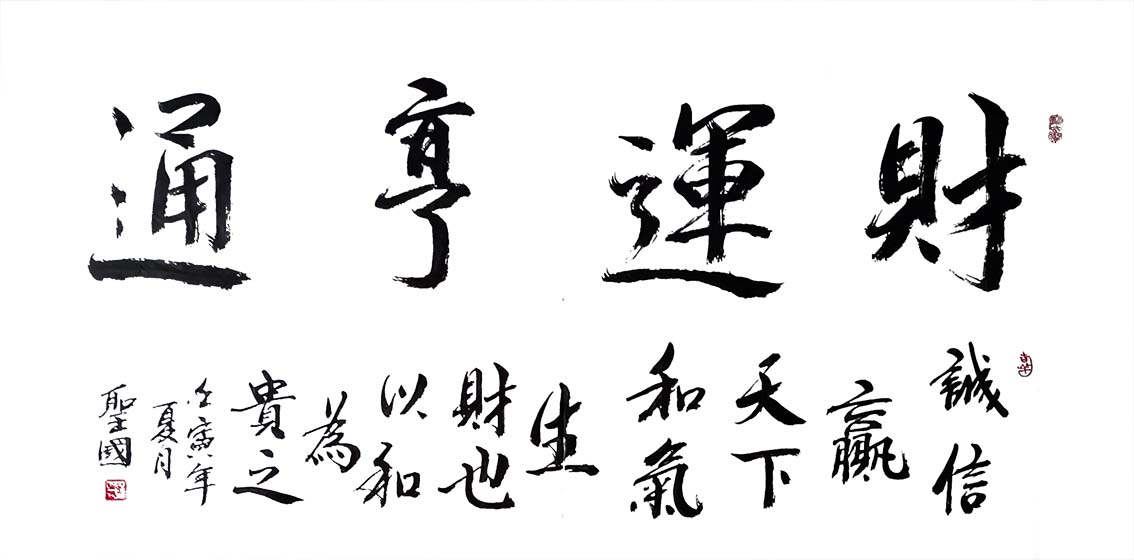 財運亨通
誠信
贏
天下
和氣
生
財也
以和
為
貴之
壬寅年
夏月
聖國